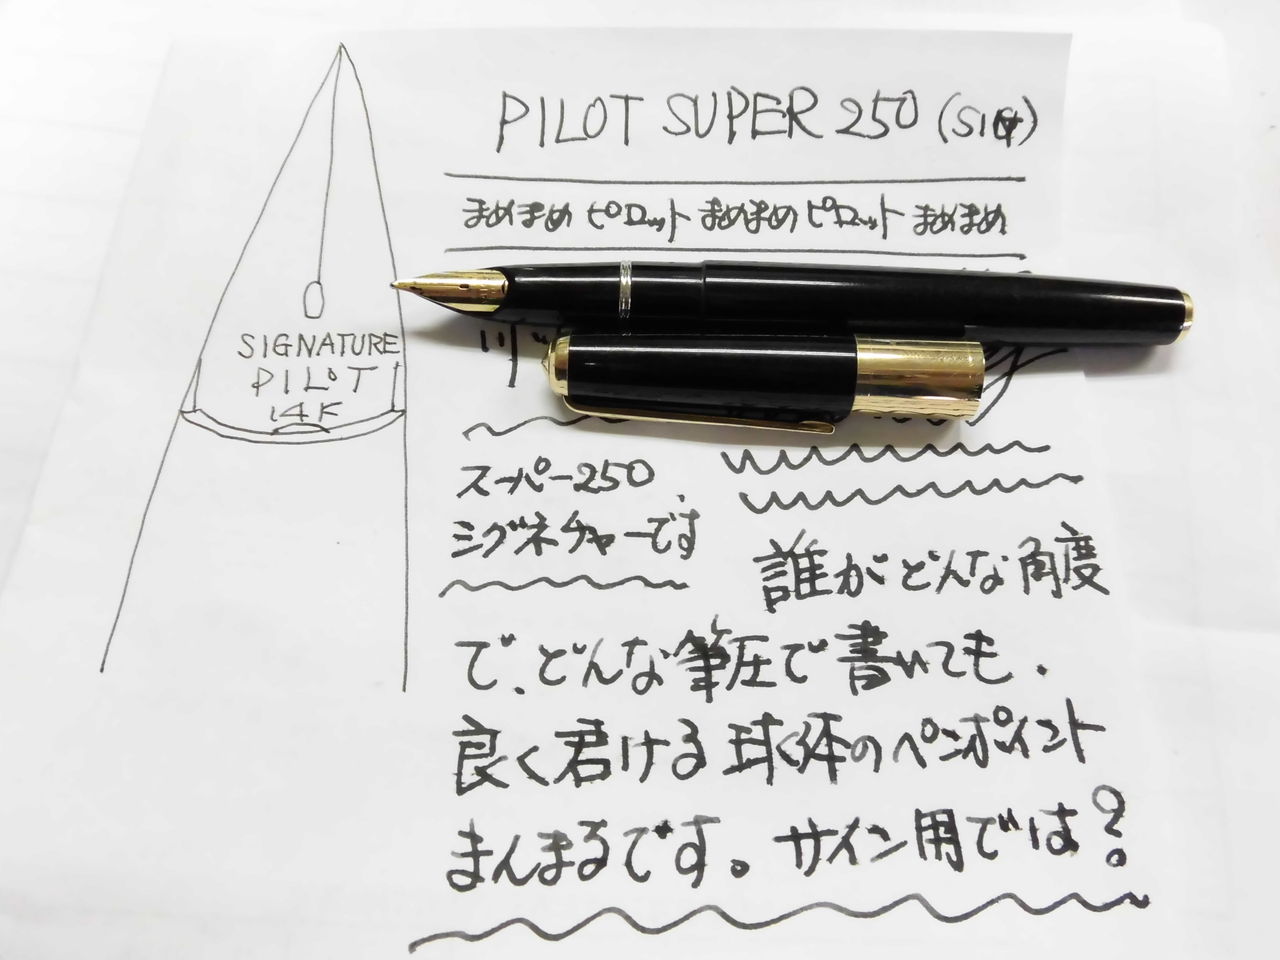 PILOT SUPER 250 (SIG)
まめまめ ピロット まめまめ ピロット まめまめ
SIGNATURE
PILOT
14K
スーパー250
シグネチャーです
誰がどんな角度
で、どんな筆圧で書いても、
良く君ける球体のペンポイント
まんまるです。サイン用では?